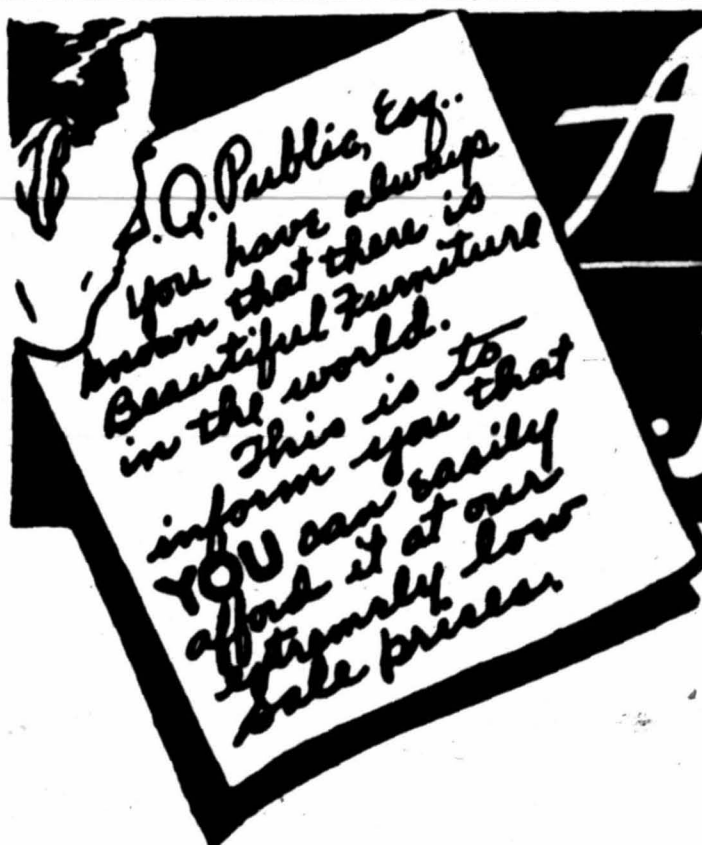 . Q. Public, Esq..
You have always
known that there is
Beautiful Furniture
in the world.
This is to
inform you that
YOU can easily
afford it at our
extremely low
sale prices.
A